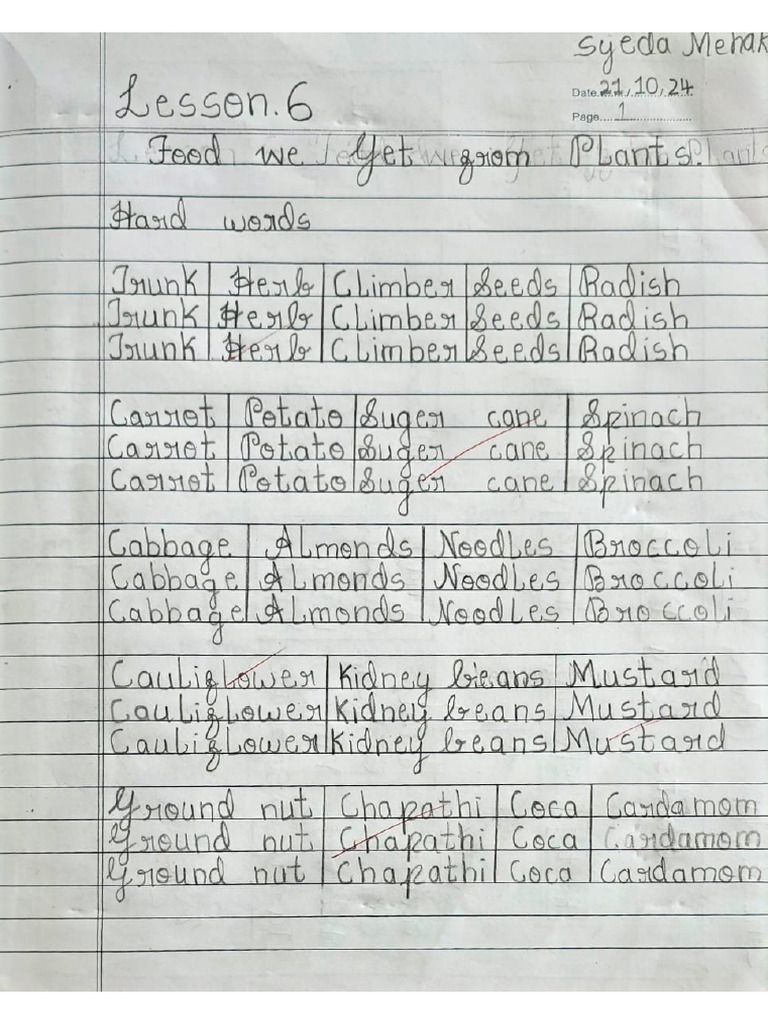 Syeda Mehak
Date 21/10/24
Page 1
Lesson.6
Food we Get from Plants.
Hard words
Trunk Herb Climber Seeds Radish
Trunk Herb Climber Seeds Radish
Trunk Herb Climber Seeds Radish
Carrot Potato Suger cane Spinach
Carrot Potato Suger cane Spinach
Carrot Potato Suger cane Spinach
Cabbage Almonds Noodles Broccoli
Cabbage Almonds Noodles Broccoli
Cabbage Almonds Noodles Broccoli
Cauliflower Kidney beans Mustard
Cauliflower Kidney beans Mustard
Cauliflower Kidney beans Mustard
Ground nut Chapathi Coca Cardamom
Ground nut Chapathi Coca Cardamom
Ground nut Chapathi Coca Cardamom